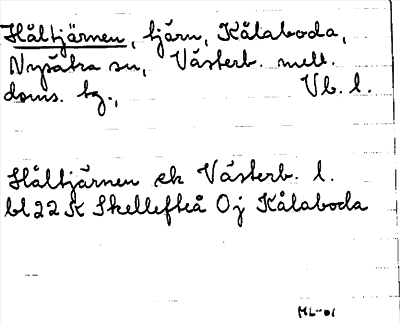 Håltjärnen, tjärn, Kålaboda,
Nysätra sn, Västerb. mell.
doms. tg., Vb. l.
Håltjärnen ek Västerb. l.
bl 22 K Skellefteå Oj Kålaboda
ML-01